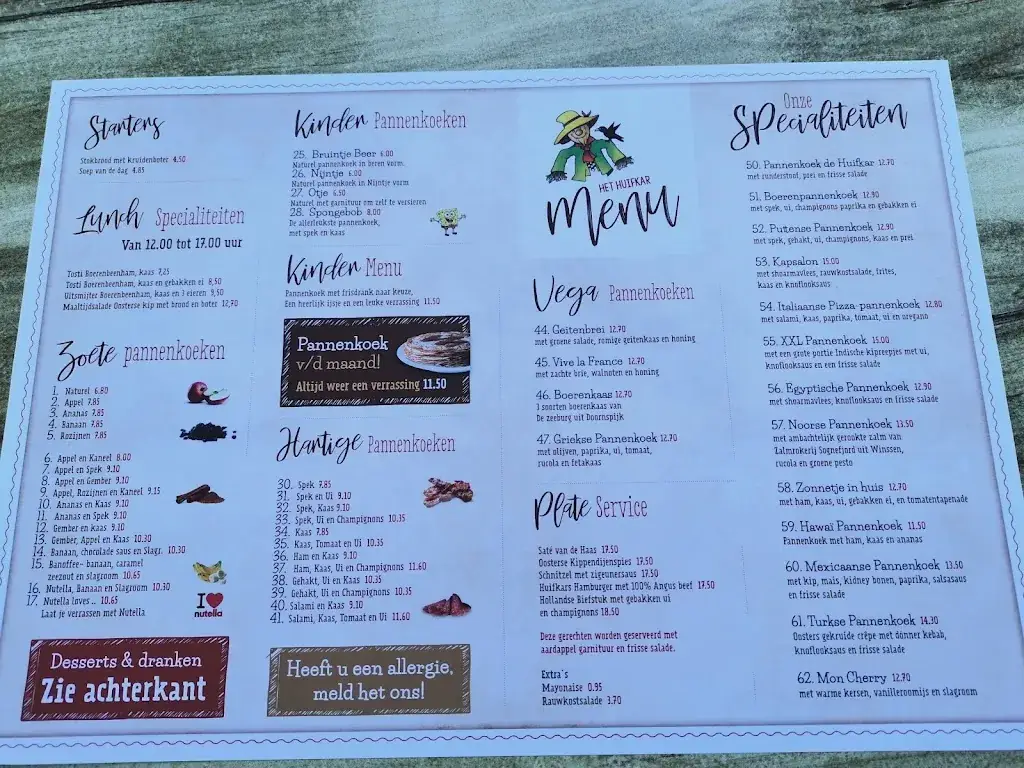 Starters
Stokbrood met kruidenboter 4.50
Soep van de dag 4.85
Lunch Specialiteiten
Van 12.00 tot 17.00 uur
Tosti Boerenbeenham, kaas 7,25
Tosti Boerenbeenham, kaas en gebakken ei 8,50
Uitsmijter Boerenbeenham, kaas en 3 eieren 9,50
Maaltijdsalade Oosterse kip met brood en boter 12,70
Zoete pannenkoeken
1. Naturel 6.80
2. Appel 7.85
3. Ananas 7.85
4. Banaan 7.85
5. Rozijnen 7.85
6. Appel en Kaneel 8.00
7. Appel en Spek 9.10
8. Appel en Gember 9.10
9. Appel, Rozijnen en Kaneel 9.15
10. Ananas en Kaas 9.10
11. Ananas en Spek 9.10
12. Gember en kaas 9.10
13. Gember, Appel en Kaas 10.30
14. Banaan, chocolade saus en Slagr. 10.30
15. Banoffee- banaan, caramel
zeezout en slagroom 10.65
16. Nutella, Banaan en Slagroom 10.30
17. Nutella loves .. 10.65
Laat je verrassen met Nutella.
I
nutella
Desserts & dranken
Zie achterkant
Kinder Pannenkoeken
25. Bruintje Beer 6.00
Naturel pannenkoek in beren vorm.
26. Nijntje 6.00
Naturel pannenkoek in Nijntje vorm
27. Otje 6.50
Naturel met garnituur om zelf te versieren
28. Spongebob 8.00
De allerleukste pannenkoek,
met spek en kaas
Kinder Menu
Pannenkoek met frisdrank naar keuze,
Een heerlijk ijsje en een leuke verrassing 11.50
Pannenkoek
v/d maand!
Altijd weer een verrassing 11.50
Hartige Pannenkoeken
30. Spek 7.85
31. Spek en Ui 9.10
32. Spek, Kaas 9.10
33. Spek, Ui en Champignons 10.35
34. Kaas 7.85
35. Kaas, Tomaat en Ui 10.35
36. Ham en Kaas 9.10
37. Ham, Kaas, Ui en Champignons 11.60
38. Gehakt, Ui en Kaas 10.35
39. Gehakt, Ui en Champignons 10.35
40. Salami en Kaas 9.10
41. Salami, Kaas, Tomaat en Ui 11.60
Heeft u een allergie,
meld het ons!
HET HUIFKAR
Menu
Vega Pannenkoeken
44. Geitenbrei 12.70
met groene salade, romige geitenkaas en honing
45. Vive la France 12.70
met zachte brie, walnoten en honing
46. Boerenkaas 12.70
3 soorten boerenkaas van
De zeeburg uit Doornspijk
47. Griekse Pannenkoek 12.70
met olijven, paprika, ui, tomaat,
rucola en fetakaas
Plate Service
Saté van de Haas 17.50
Oosterse Kippendijenspies 17.50
Schnitzel met zigeunersaus 17.50
Huifkars Hamburger met 100% Angus beef 17.50
Hollandse Biefstuk met gebakken ui
en champignons 18.50
Deze gerechten worden geserveerd met
aardappel garnituur en frisse salade.
Extra's
Mayonaise 0.95
Rauwkostsalade 3.70
Onze
SPecialiteiten
50. Pannenkoek de Huifkar 12.70
met runderstoof, prei en frisse salade
51. Boerenpannenkoek 12.90
met spek, ui, champignons paprika en gebakken ei
52. Puttense Pannenkoek 12.90
met spek, gehakt, ui, champignons, kaas en prei
53. Kapsalon 15.00
met shoarmavlees, rauwkostsalade, frites,
kaas en knoflooksaus
54. Italiaanse Pizza-pannenkoek 12.80
met salami, kaas, paprika, tomaat, ui en oregano
55. XXL Pannenkoek 15.00
met een grote portie Indische kipreepjes met ui,
knoflooksaus en een frisse salade
56. Egyptische Pannenkoek 12.90
met shoarmavlees, knoflooksaus en frisse salade
57. Noorse Pannenkoek 13.50
met ambachtelijk gerookte zalm van
Zalmrokerij Sognefjord uit Winssen,
rucola en groene pesto
58. Zonnetje in huis 12.70
met ham, kaas, ui, gebakken ei, en tomatentapenade
59. Hawaï Pannenkoek 11.50
Pannenkoek met ham, kaas en ananas
60. Mexicaanse Pannenkoek 13.50
met kip, mais, kidney bonen, paprika, salsasaus
en frisse salade
61. Turkse Pannenkoek 14.30
Oosters gekruide crêpe met dönner kebab,
knoflooksaus en frisse salade
62. Mon Cherry 12.70
met warme kersen, vanilleroomijs en slagroom